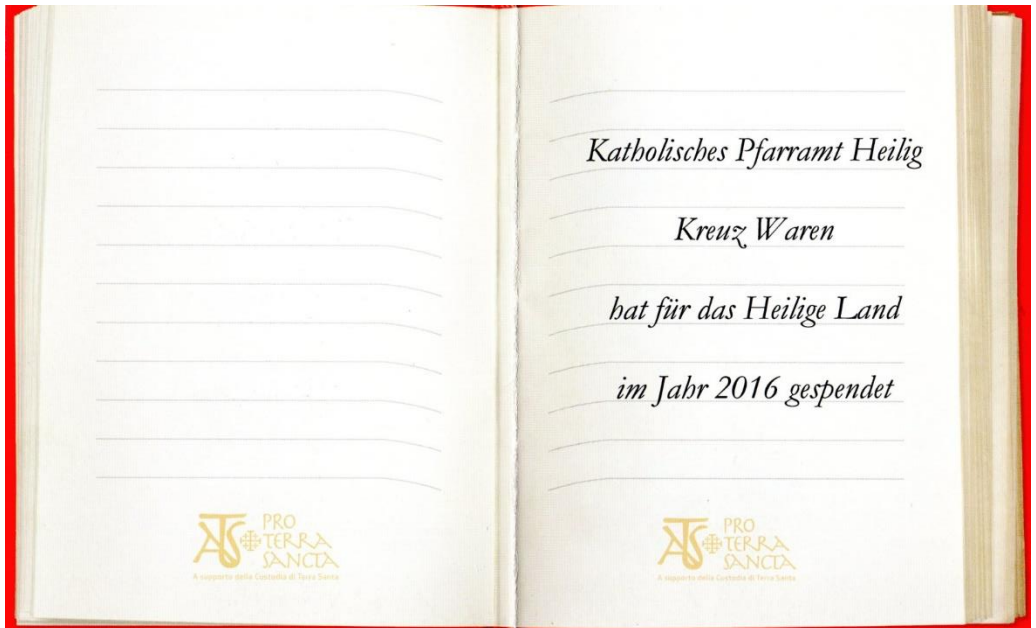 PRO
TERRA
SANCTA
A supporto della Custodia di Terra Santa
Katholisches Pfarramt Heilig
Kreuz Waren
hat für das Heilige Land
im Jahr 2016 gespendet
ATS
PRO
TERRA
SANCTA
A supporto della Custodia di Terra Santa